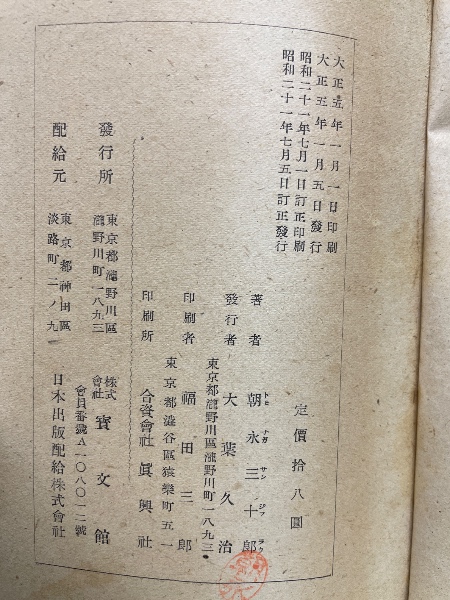 大正五年一月一日印刷
大正五年一月五日發行
昭和二十一年七月一日訂正印刷
昭和二十一年七月五日訂正發行
定價拾八圓
著者 朝永三十郎
トモ ナガ サン ジフ ラウ
發行者 大葉久治
東京都瀧野川區瀧野川町一八九三
印刷者 福田三郎
東京都澁谷區猿樂町五一
印刷所 合資會社 眞興社
發行所 東京都瀧野川區
瀧野川町一八九三
株式會社 寶文館
會員番號A一〇八〇一二號
配給元 東京都神田區
淡路町二ノ九
日本出版配給株式會社